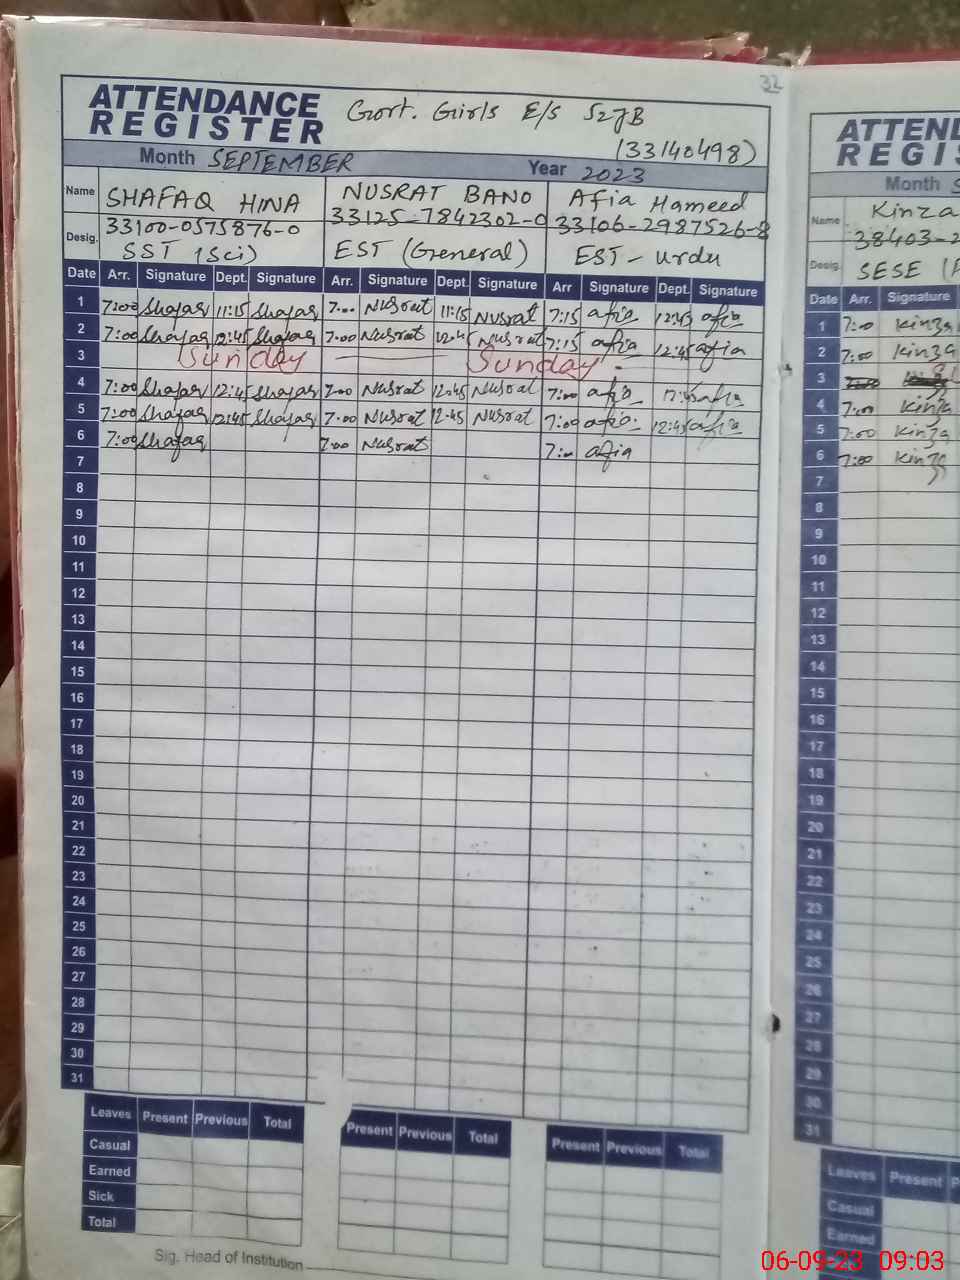 32
ATTENDANCE REGISTER Govt. Girls E/S 527JB
(33140498)
Month SEPTEMBER Year 2023
Name SHAFAQ HINA NUSRAT BANO Afia Hameed
33100-0575876-0 33125-7842302-0 33106-2987526-8
Desig. SST (Sci) EST (General) EST - Urdu
Date Arr. Signature Dept. Signature Arr. Signature Dept. Signature Arr Signature Dept. Signature
1 7:00 Shafaq 11:15 Shafaq 7:00 Nusrat 11:15 Nusrat 7:15 afia 12:45 afia
2 7:00 Shafaq 12:45 Shafaq 7:00 Nusrat 12:45 Nusrat 7:15 afia 12:45 afia
3 Sunday Sunday
4 7:00 Shafaq 12:45 Shafaq 7:00 Nusrat 12:45 Nusrat 7:00 afia 12:45 afia
5 7:00 Shafaq 12:45 Shafaq 7:00 Nusrat 12:45 Nusrat 7:00 afia 12:45 afia
6 7:00 Shafaq 7:00 Nusrat 7:00 afia
7
8
9
10
11
12
13
14
15
16
17
18
19
20
21
22
23
24
25
26
27
28
29
30
31
Leaves Present Previous Total Present Previous Total Present Previous Total
Casual
Earned
Sick
Total
Sig. Head of Institution
ATTEND
REGIS
Month S
Name Kinza
38403-2
Desig. SESE (P
Date Arr. Signature
1 7:00 Kinza
2 7:00 Kinza
3
4 7:00 Kinza
5 7:00 Kinza
6 7:00 Kinza
7
8
9
10
11
12
13
14
15
16
17
18
19
20
21
22
23
24
25
26
27
28
29
30
31
Leaves Present P
Casual
Earned
06-09-23 09:03